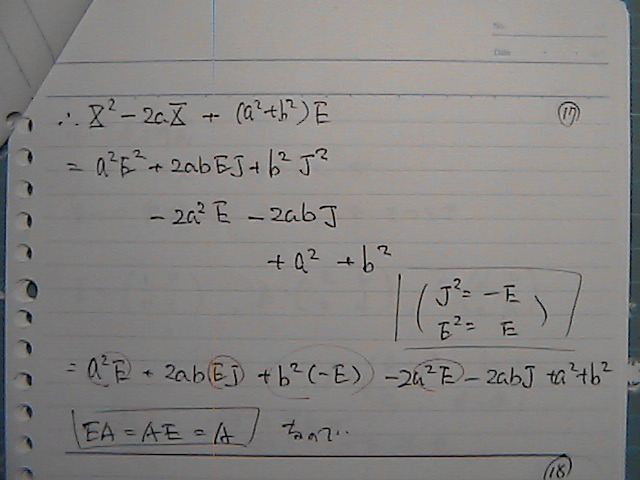 No.
Date
⑰
∴ X² - 2aX + (a²+b²)E
= a²E² + 2abEJ + b²J²
- 2a²E - 2abJ
+ a² + b²
( J² = -E
E² = E )
= a²E + 2abEJ + b²(-E) - 2a²E - 2abJ + a² + b²
EA = AE = A なので..
⑱